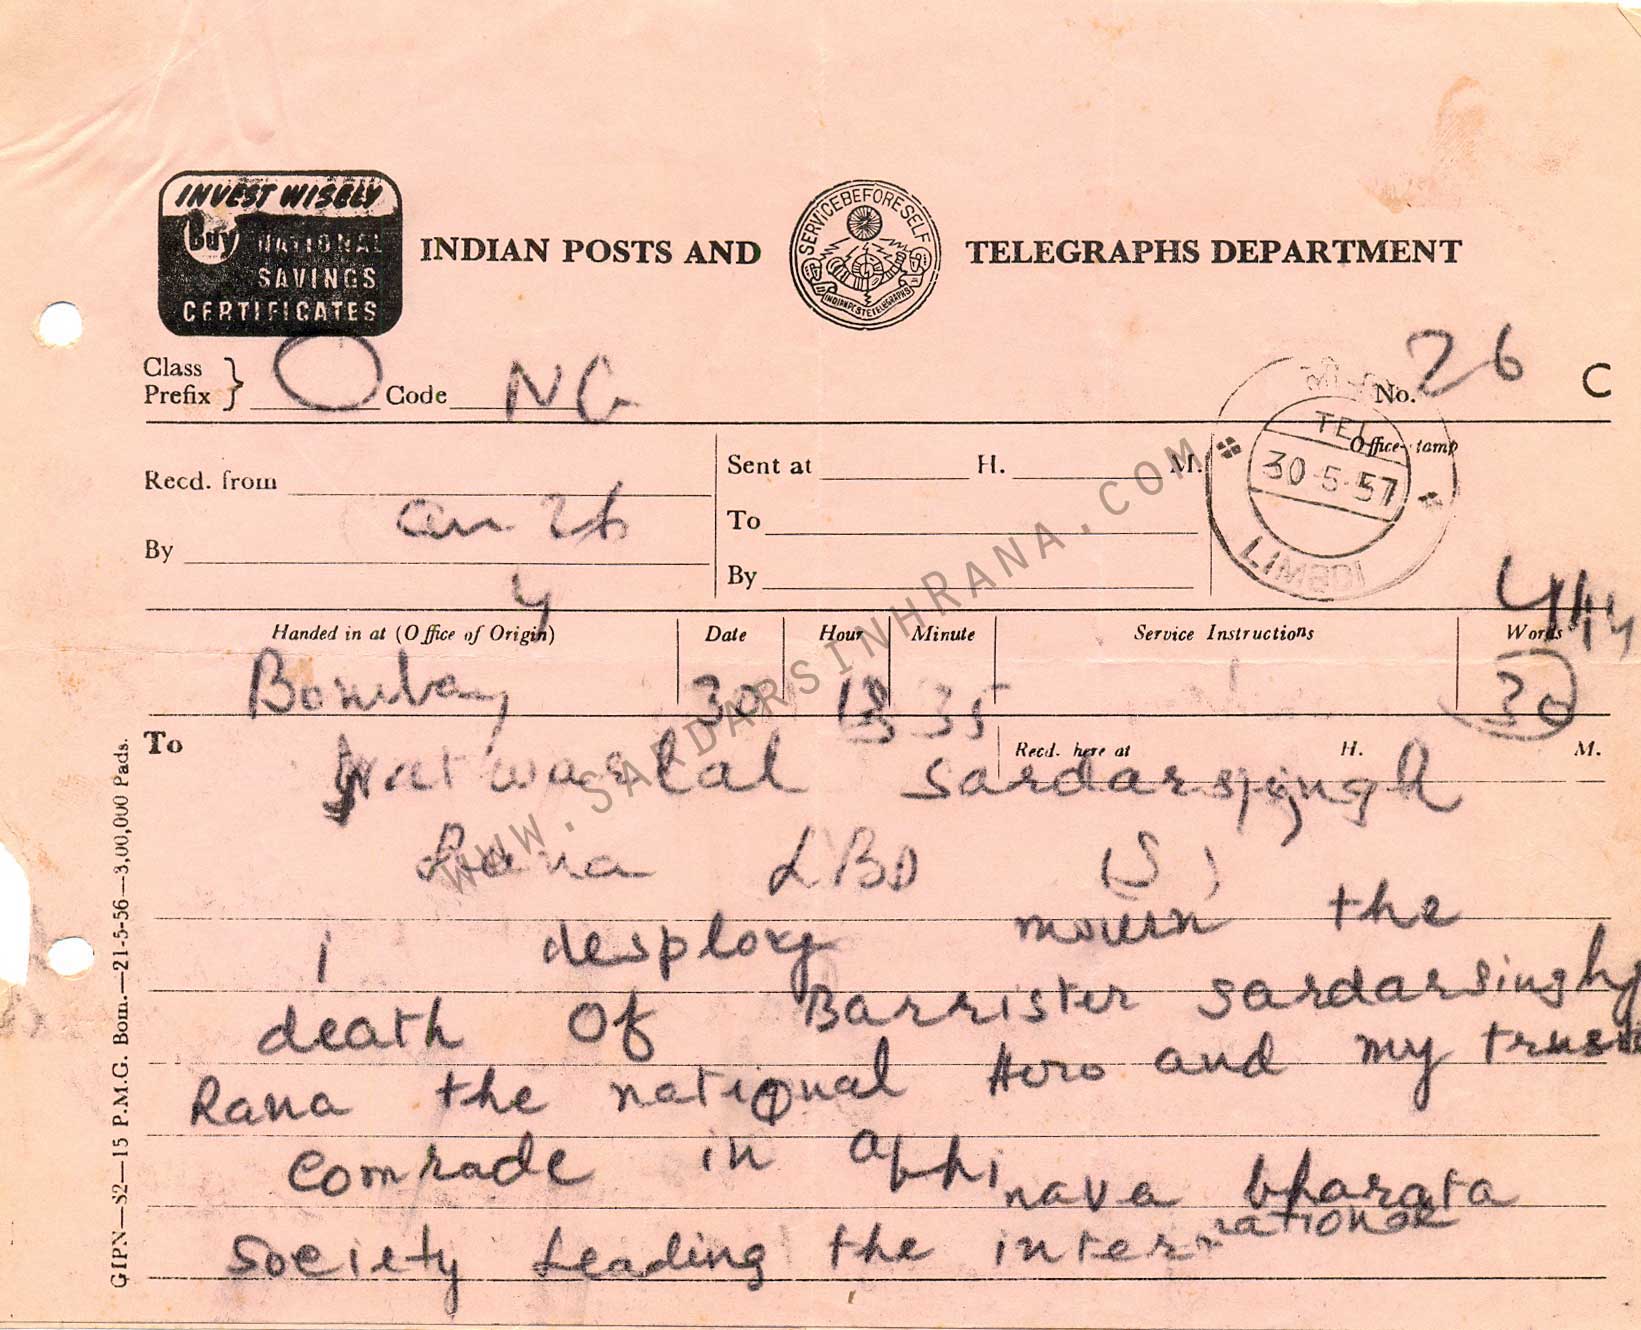 INVEST WISELY
Buy NATIONAL
SAVINGS
CERTIFICATES
INDIAN POSTS AND TELEGRAPHS DEPARTMENT
SERVICE BEFORE SELF
INDIAN POSTS & TELEGRAPHS
Class
Prefix } O Code NG No. 26 C
Office-stamp
TEL
30-5-57
LIMBDI
Recd. from
By
26
Sent at H. M.
To
By
Handed in at (Office of Origin) Date Hour Minute Service Instructions Words
Bombay 30 18 35 30
To
Recd. here at H. M.
Natwarlal Sardarsingh
Rana LBD (S)
i desplory mourn the
death of Barrister sardarsinghj
Rana the national Hero and my truste
comrade in abhinava bharata
society leading the international
GIPN—S2—15 P.M.G. Bom.—21-5-56—3,00,000 Pads.
WWW.SARDARSINHRANA.COM